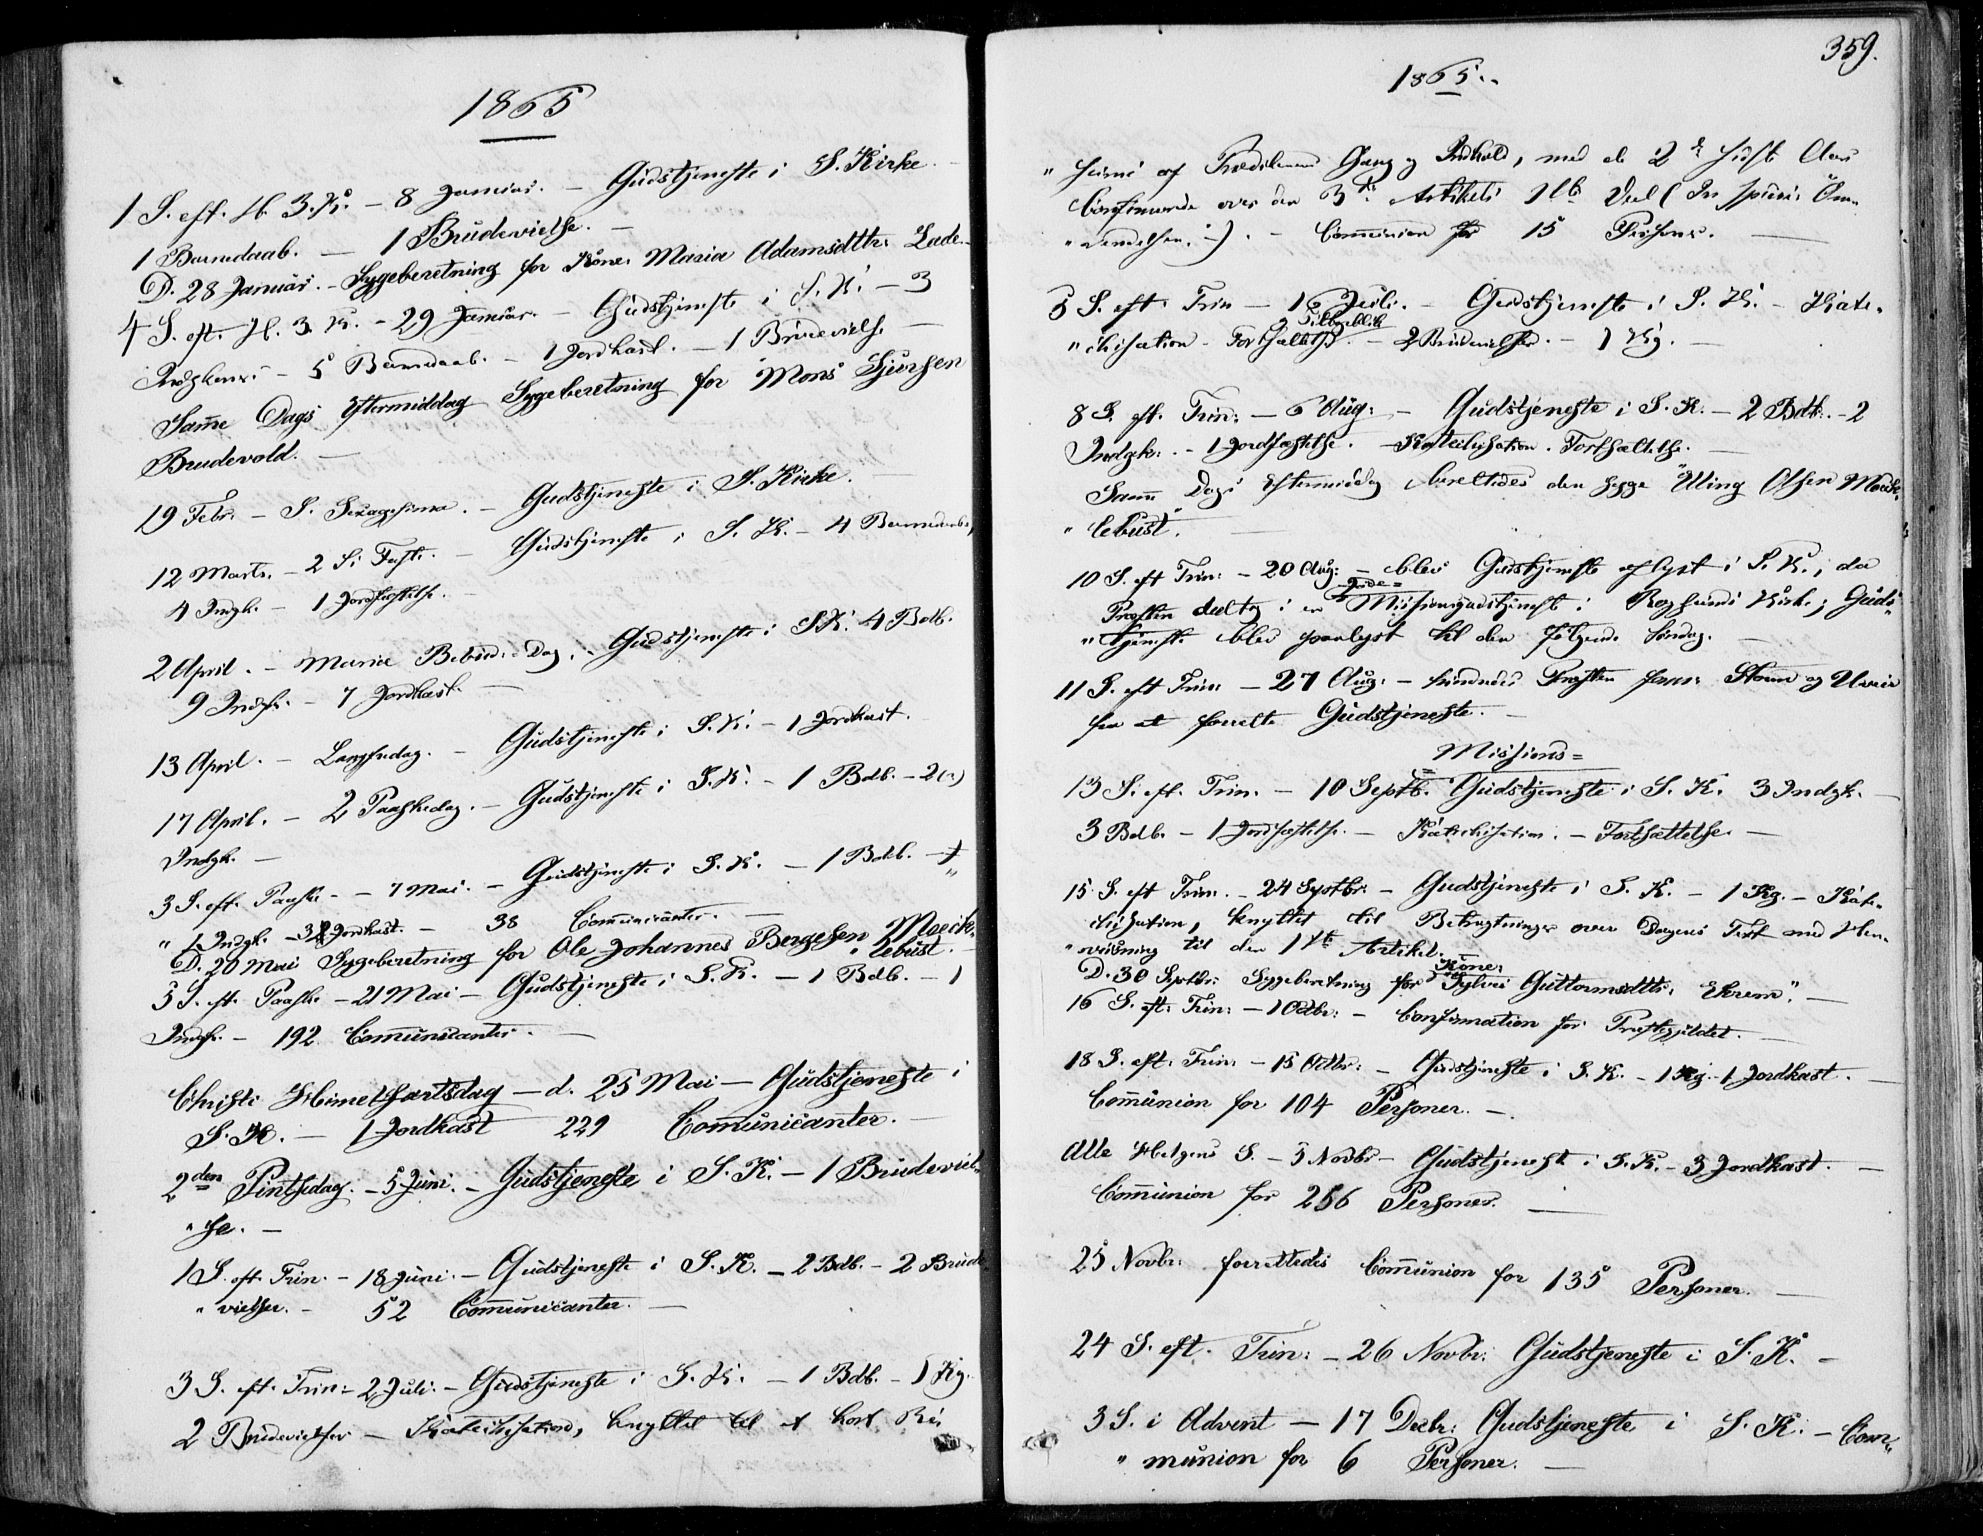 1865
1 S. eft. H. 3. K. – 8 Januar. – Gudstjeneste i S. Kirke. –
1 Barnedaab. – 1 Brudevielse. –
D. 28 Januar. – Sygeberetning for Kone: Maria Adamsdttr. Lade.
4 S. eft. H. 3. K. – 29 Januar. – Gudstjeneste i S. K. – 3
Indgkoner – 5 Barnedaab. – 1 Jordkast. – 1 Brudevielse –
Same Dags Eftermiddag Sygeberetning for Mons Sjursen
Brudevold. –
19 Febr. – S. Sexagesima. – Gudstjeneste i S. Kirke.
12 Marts. – 2 S. i Faste. – Gudstjeneste i S. K. – 4 Barnedaab,
4 Indgk. – 1 Jordfæstelse. –
2 April. – Mariæ Bebud. Dag. – Gudstjeneste i S. K. 4 Bdb.
9 Indgk. – 7 Jordkast. –
13 April. – Langfredag. – Gudstjeneste i S. K. – 1 Jordkast.
17 April. – 2 Paaskedag. – Gudstjeneste i S. K. – 1 Bdb. – 2
Indgk. –
3 S. eft. Paaske – 7 Mai. – Gudstjeneste i S. K. – 1 Bdb. –
" 1 Indgk. – 3 Jordkast. – 38 Comunicanter. –
D. 20 Mai Sygeberetning for Ole Johannes Bergesen Moeik-
"lebust. –
5 S. eft. Paaske – 21 Mai – Gudstjeneste i S. K. – 1 Bdb. – 1
Indgk. – 192 Comunicanter. –
Christi Himelfartsdag – d. 25 Mai – Gudstjeneste i
S. K. – 1 Jordkast 229 Comunicanter. –
2den Pintsedag. – 5 Juni. – Gudstjeneste i S. K. – 1 Brudeviel-
" se. –
1 S. eft. Trin. – 18 Juni. – Gudstjeneste i S. K. – 2 Bdb. – 2 Brude
" vielser. – 52 Comunicanter. –
3 S. eft. Trin – 2 Juli. – Gudstjeneste i S. K. – 1 Bdb. – 1 Kg.
2 Brudevielser – Katechisation, knyttet til et kort Re
359.
1865. –
" sumé af Prædikenens Gang og Indhold, med de 2de sidste Aars
Confirmerede over den 3die Artikels 1ste Deel (In specie: Om-
" vendelsen. –). – Comunion for 15 Personer. –
5 S. eft. Trin – 16 Juli. – Gudstjeneste i S. K. Kate-
Tilbageblik
" chisation – Fortsættelse. – 2 Brudevielser. – 1 Kg. –
8 S. eft. Trin: – 6 Aug: – Gudstjeneste i S. K. – 2 Bdb. – 2
Indgk: – 1 Jordfæstelse. – Katechisation. Fortsættelse. –
Samme Dags Eftermiddag berettedes den syge Elling Olsen Moeik-
" lebust. –
10 S. eft Trin: – 20 Aug: – blev Gudstjeneste aflyst i S. K., da
Præsten deltog i en Missionsgudstjeneste i Borgunds Kirke; Guds-
" tjeneste blev paalyst til den følgende Søndag. –
11 S. eft Trin: – 27 Aug: – hindredes Præsten formed. Storm og Uveir
fra at forrette Gudstjeneste. –
Missions=
13 S. eft. Trin. – 10 Septb. Gudstjeneste i S. K. 3 Indgk. –
3 Bdb. – 1 Jordfæstelse. – Katechisation. – Fortsættelse. –
15 S. eft Trin. – 24 Septbr. – Gudstjeneste i S. K. – 1 Kg. – Kate-
chisation, knyttet til Betragtninger over Dagens Text med Hen-
" viisning til den 1ste Artikel. –
Kone:
D. 30 Septbr: Sygeberetning for Sylvei Guttormsdttr. Ekrem. –
16 S. eft. Trin: – 1 Octbr: – Confirmation for Præstegjeldet. –
18 S. eft. Trin: – 15 Octbr: – Gudstjeneste i S. K. – 1 Kg. – 1 Jordkast. –
Comunion for 104 Personer. –
Alle Helgens S. – 5 Novbr – Gudstjeneste i S. K. – 3 Jordkast. –
Comunion for 256 Personer. –
25 Novbr: forrettedes Comunion for 135 Personer. –
24 S. eft. Trin: – 26 Novbr: Gudstjeneste i S. K. –
3 S. i Advent – 17 Decbr: Gudstjeneste i S. K. – Com-
" munion for 6 Personer. –